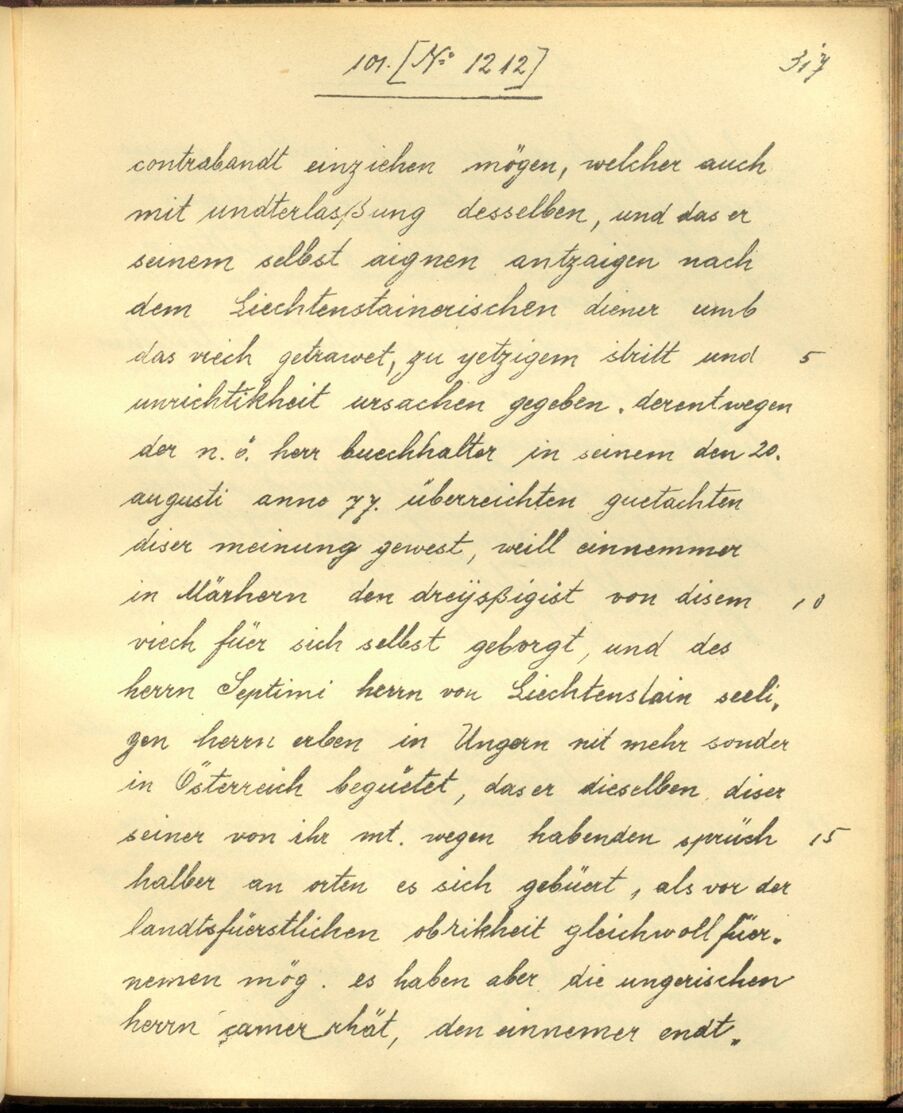 101. [No 1212]
317
contrabandt einziehen mögen, welcher auch
mit undterlaßung desselben, und das er
seinem selbst aignen antzaigen nach
dem Liechtenstainerischen diener umb
das viech getrawet, zu yetzigem stritt und 5
unrichtikheit ursachen gegeben. derentwegen
der n. ö. herr buechhalter in seinem den 20.
augusti anno 77. überreichten guetachten
diser meinung gewest, weill einnemmer
in Märhern den dreÿsßigist von disem 10
viech füer sich selbst geborgt, und des
herrn Septimi herrn von Liechtenstain seeli„
gen herrn erben in Ungern nit mehr sonder
in Österreich begüetet, das er dieselben diser
seiner von ihr mt. wegen habenden sprüch 15
halber an orten es sich gebüert, als vor der
landtsfüerstlichen obrikheit gleichwoll füer„
nemen mög. es haben aber die ungerischen
herrn camer rhät, den einnemer endt„